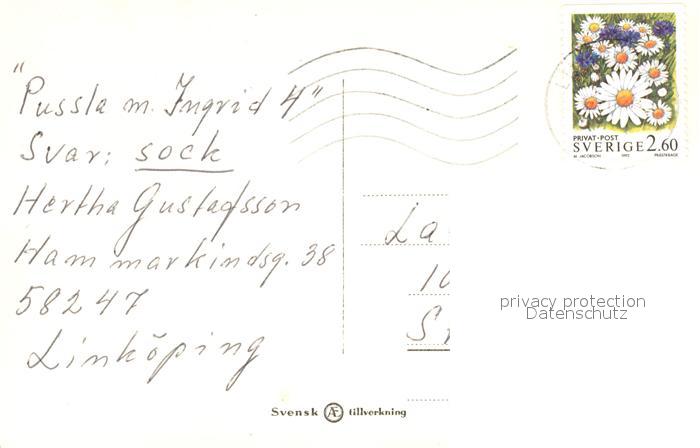 "Pussla m. Ingrid 4"
Svar: sock
Hertha Gustafsson
Hammarkindsg. 38
58247
Linköping
La
10
PRIVAT·POST
SVERIGE 2.60
M. JACOBSON 1992 PRÄSTKRAGE
privacy protection
Datenschutz
Svensk Æ tillverkning